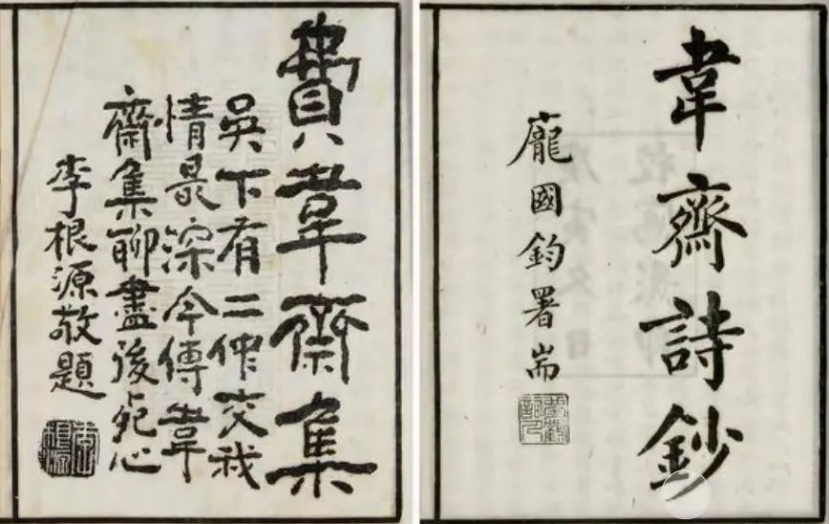 韋齋詩鈔
龐國鈞署耑
費韋齋集
吳下有二仲交我
情最深今傳韋
齋集聊盡後死心
李根源敬題